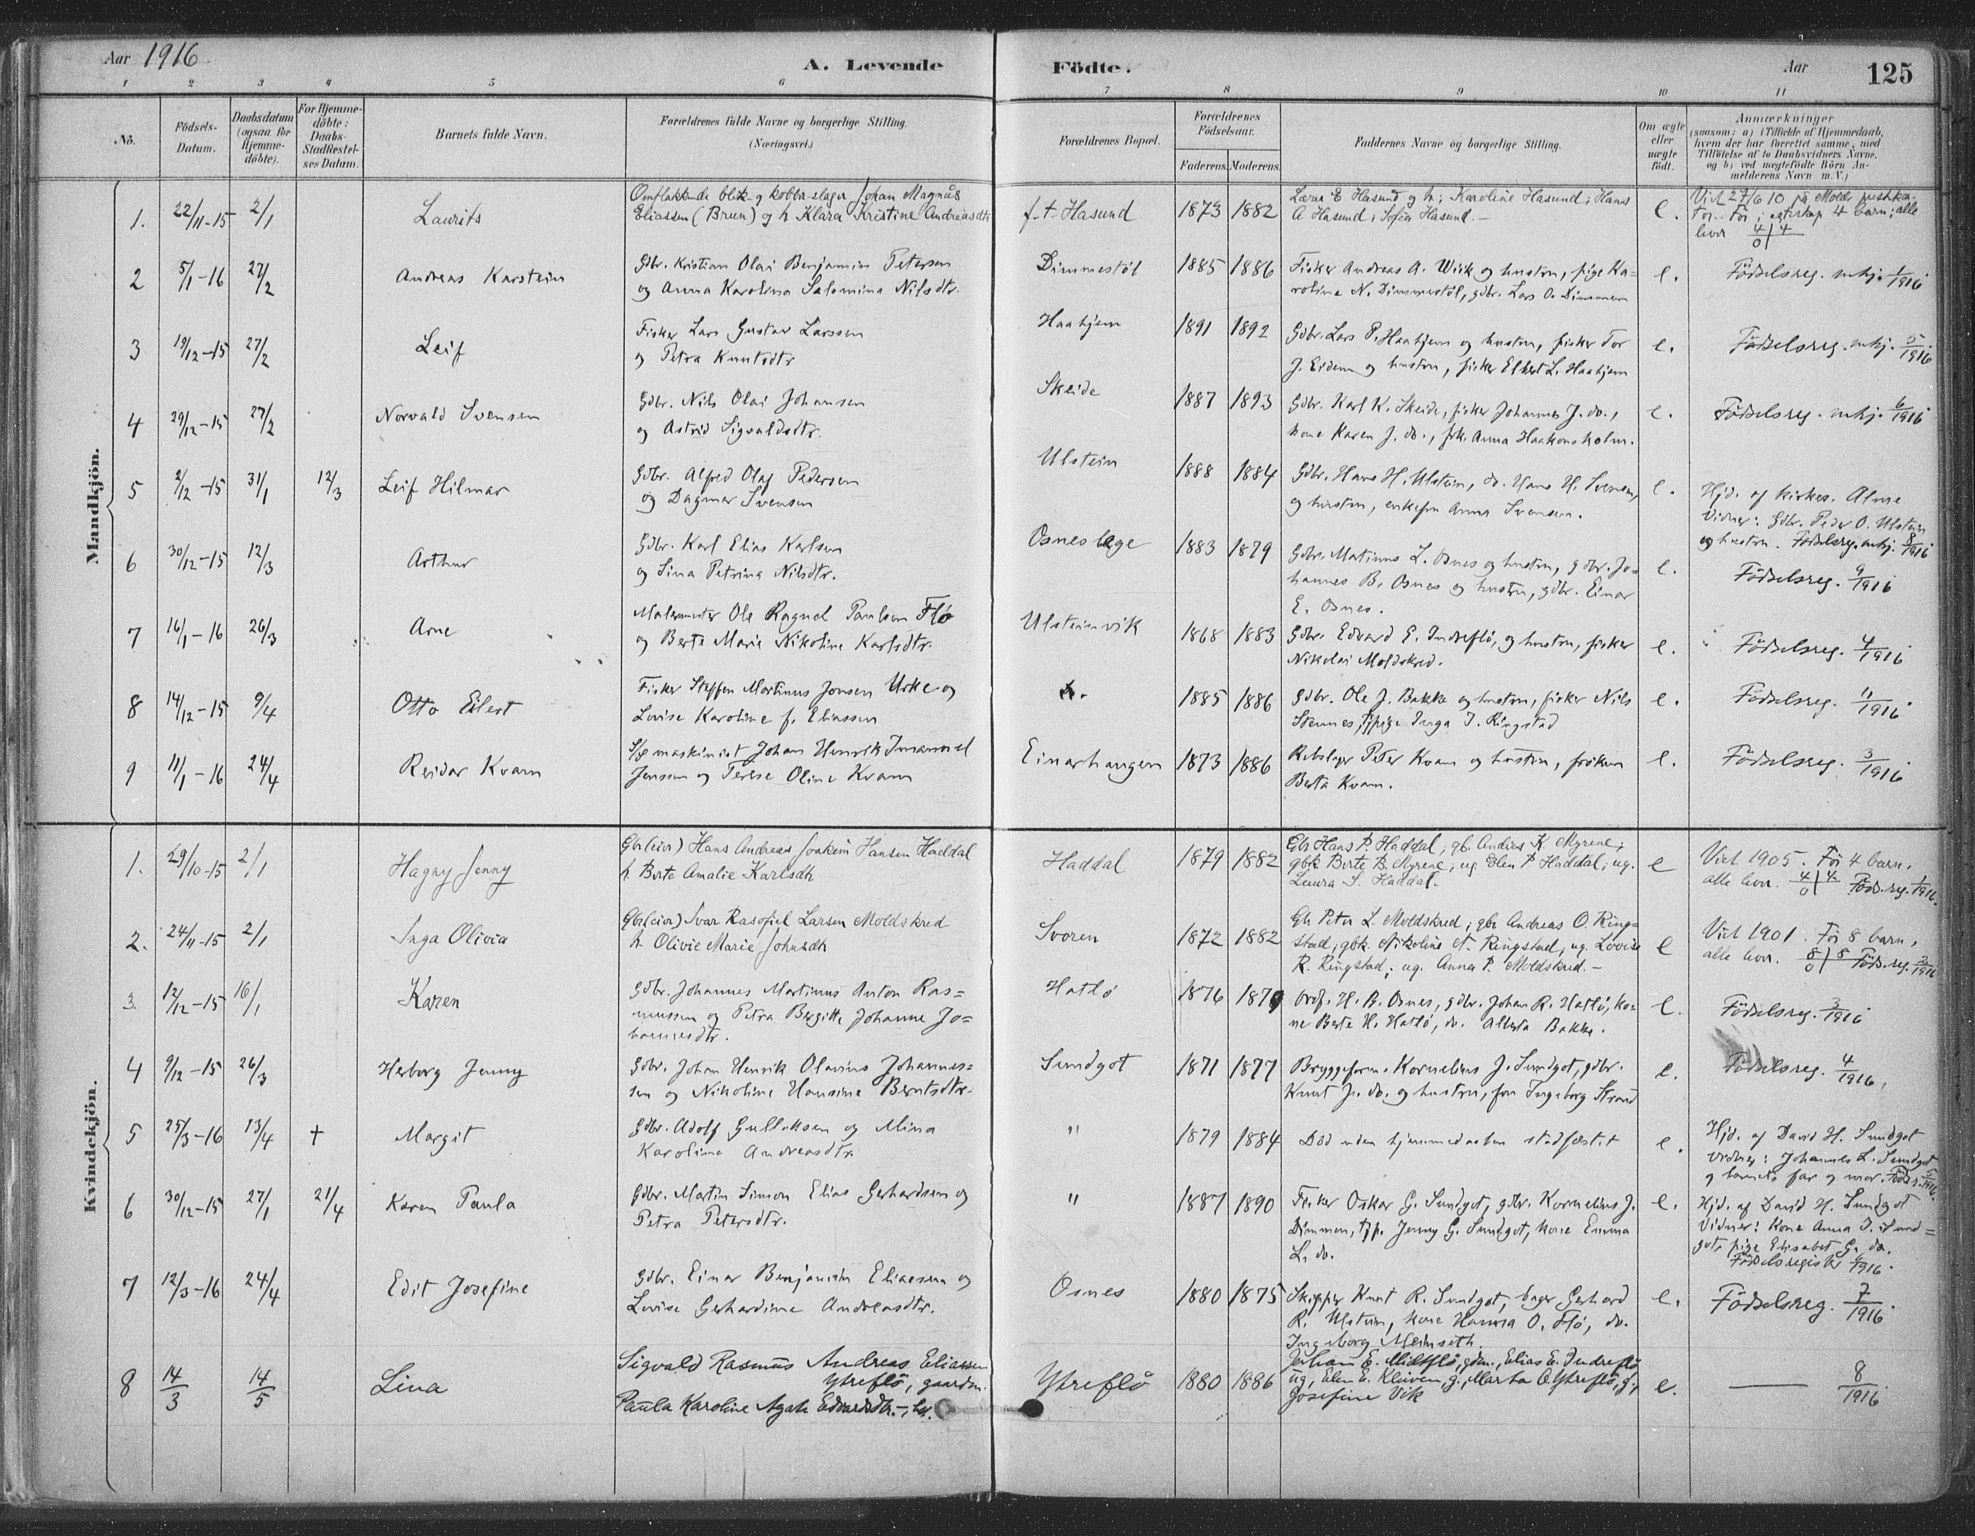 Aar 1916
A. Levende Födte.
Aar 125
1 2 3 4 5 6 7 8 9 10 11
No.
Födsels-Datum.
Daabsdatum (ogsaa for Hjemme-döbte).
For Hjemme-döbte: Daabs-Stadfæstel-ses Datum.
Barnets fulde Navn.
Forældrenes fulde Navne og borgerlige Stilling. (Næringsvei.)
Forældrenes Bopæl.
Forældrenes Födselsaar.
Faderens. Moderens.
Faddernes Navne og borgerlige Stilling.
Om ægte eller uægte födt.
Anmærkninger
(saasom: a) i Tilfælde af Hjemmedaab, hvem der har forrettet samme, med Tilföielse af to Daabsvidners Navne, og b) ved uægtefödte Börn An-melderens Navn m. V.)
Mandkjön.
1. 22/11-15 2/1 Laurits
Omflakkende blik- og kobberslager Johan Magnus
Eliassen (Bruen) og h Klara Kristine Andreasdtr
f.t. Hasund 1873 1882
Lærer E Hasund og h; Karoline Hasund; Hans
A Hasund; Sofie Hasund.-
e.
Viet 27/6 10 på Molde prestekon-
tor. Før i egteskap 4 barn; alle
lever 4/0|4
2 5/1-16 27/2 Andreas Karstein
Gdbr. Kristian Olai Benjamin Petersen
og Anna Karolina Salomina Nilsdtr.
Dimmestøl 1885 1886
Fisker Andreas A. Wiik og hustru, pige Ka=
roline N. Dimmestøl, gdbr. Lars O. Dimmen
e. Fødselsreg. mkj. 1/1916
3 19/12-15 27/2 Leif
Fisker Lars Gustav Larssen
og Petra Knutsdtr
Haahjem 1891 1892
Gdbr. Lars P. Haahjem og hustru, fisker Tor
J. Eidem og hustru, fisker Elbert L. Haahjem
e. Fødselsreg. mkj. 5/1916
4 29/12-15 27/2 Norvald Svensen
Gdbr. Nils Olai Johansen
og Astrid Sigvaldsdtr.
Skeide 1887 1893
Gdbr. Karl K. Skeide, fisker Johannes J. do.,
kone Karen J. do., frk. Anna Haakonsholm.
e. Fødselsreg. mkj. 6/1916
5 2/12-15 31/1 12/3 Leif Hilmar
Gdbr. Alfred Olaf Pedersen
og Dagmar Svensen
Ulstein 1888 1884
Gdbr. Hans H. Ulstein, do. Hans H. Svensen,
og hustru, enkefru Anna Svensen.
e.
Hjd. af kirkes. Alme
Vidner: Gdbr. Peder O. Ulstein
og hustru. Fødselsreg. mkj. 8/1916
6 30/12-15 12/3 Arthur
Gdbr. Karl Elias Karlsen
og Lina Petrina Nilsdtr.
Osneshage 1883 1879
Gdbr. Martinus L. Osnes og hustru, gdbr. Jo=
hannes B. Osnes og hustru, gdbr. Einar
E. Osnes.
e. Fødselsreg. 9/1916
7 16/1-16 26/3 Arne
Malermester Ole Ragnel Paulsen Flø
og Berte Marie Nikoline Karlsdtr.
Ulsteinvik 1868 1883
Gdbr. Edvard E. Indreflø, og hustru, fisker
Nikolai Moldskred.
e. Fødselsreg. 4/1916
8 14/12-15 9/4 Otto Eilert
Fisker Steffen Martinus Jonsen Urke og
Lovise Karoline f. Eliassen
d. 1885 1886
Gdbr. Ole J. Bakke og hustru, fisker Nils
Stennes, tjpige Inga J. Ringstad
e. Fødselsreg. 11/1916
9 11/1-16 24/4 Reidar Kvam
S/s maskinist Johan Henrik Imanuel
Jenssen og Terese Oline Kvam
Einarhaugen 1873 1886
Rebslager Peter Kvam og hustru, frøken
Berta Kvam.
e. Fødselsreg. 3/1916
Kvindekjön.
1. 29/10-15 2/1 Hagny Jenny
Gbr(eier) Hans Andreas Joakim Hansen Haddal
h Berte Amalie Karlsdtr
Haddal 1879 1882
Gbr Hans P. Haddal; gb Andreas K Myrene;
gbk Berte B Myrene; ug Elen P Haddal; ug.
Laura S. Haddal.
e
Viet 1905. Før 4 barn,
alle lever. 4/0|4 Føds.reg. 1/1916.
2. 24/11-15 2/1 Inga Olivia
Gbr(eier) Ivar Rasofiel Larsen Moldskred
h Olivie Marie Johnsdtr
Svoren 1872 1882
Gbr Peter L. Moldskred; gbr Andreas O. Ring-
stad; gbk. Nikoline N. Ringstad; ug. Lovise
R. Ringstad; ug. Anna P. Moldskred.-
e
Viet 1901. Før 8 barn,
alle lever. 8/0|8 Føds.reg. 2/1916
3. 12/12-15 16/1 Karen
Gdbr. Johannes Martinus Anton Ras=
mussen og Petra Bergitte Johanne Jo=
hannesdtr.
Hatlø 1876 1879
Ordf. H. B. Osnes, gdbr. Johan R. Hatlø, ko=
ne Berte H. Hatlø, do. Alberta Bakke.
e. Fødselsreg. 3/1916
4 9/12-15 26/3 Herborg Jenny
Gdbr. Johan Henrik Olavius Johannes=
sen og Nikoline Hansine Berntsdtr.
Sundgot 1871 1877
Bryggeform. Kornelius J. Sundgot, gdbr.
Knut J. do. og hustru, fru Ingeborg Strand
e. Fødselsreg. 4/1916.
5 25/3-16 13/4 † Margit
Gdbr. Adolf Gulliksen og Mina
Karoline Andreasdtr
" 1879 1884
Død uden hjemmedaaben stadfæstet
e.
Hjd. af David H. Sundgot
Vidner: Johannes L. Sundgot
og barnets far og mor. Føds. 5/1916.
6 30/12-15 27/1 21/4 Karen Paula
Gdbr. Martin Simon Elias Gerhardsen og
Petra Petersdtr.
" 1887 1890
Fisker Oskar G. Sundgot, gdbr. Kornelius J.
Dimmen, tjp. Jenny G. Sundgot, kone Emma
L. do.
e.
Hjd. af David H. Sundgot
Vidner: Kone Anna J. Sund=
got, pige Elisabet G. do.
Fødselsregister 6/1916.
7 12/3-16 24/4 Edit Josefine
Gdbr. Einar Benjamin Eliassen og
Lovise Gerhardine Andreasdtr.
Osnes 1880 1875
Skipper Knut R. Sundgot, bager Gerhard
R. Ulstein, kone Hanna O. Flø, do.
Ingeborg Meinseth.
e. Fødselsreg. 7/1916.
8 14/3 14/5 Lina
Sigvald Rasmus Andreas Eliassen
Ytreflø, gaardm.
Paula Karoline Agate Edvardsdtr.-, h.
Ytreflø 1880 1886
Johan E. Midtflø, gdm., Elias E. Indreflø
ug, Elen E. Kleiven, g., Marta O. Ytreflø, g.,
Josefine Vik
e. — 8/1916